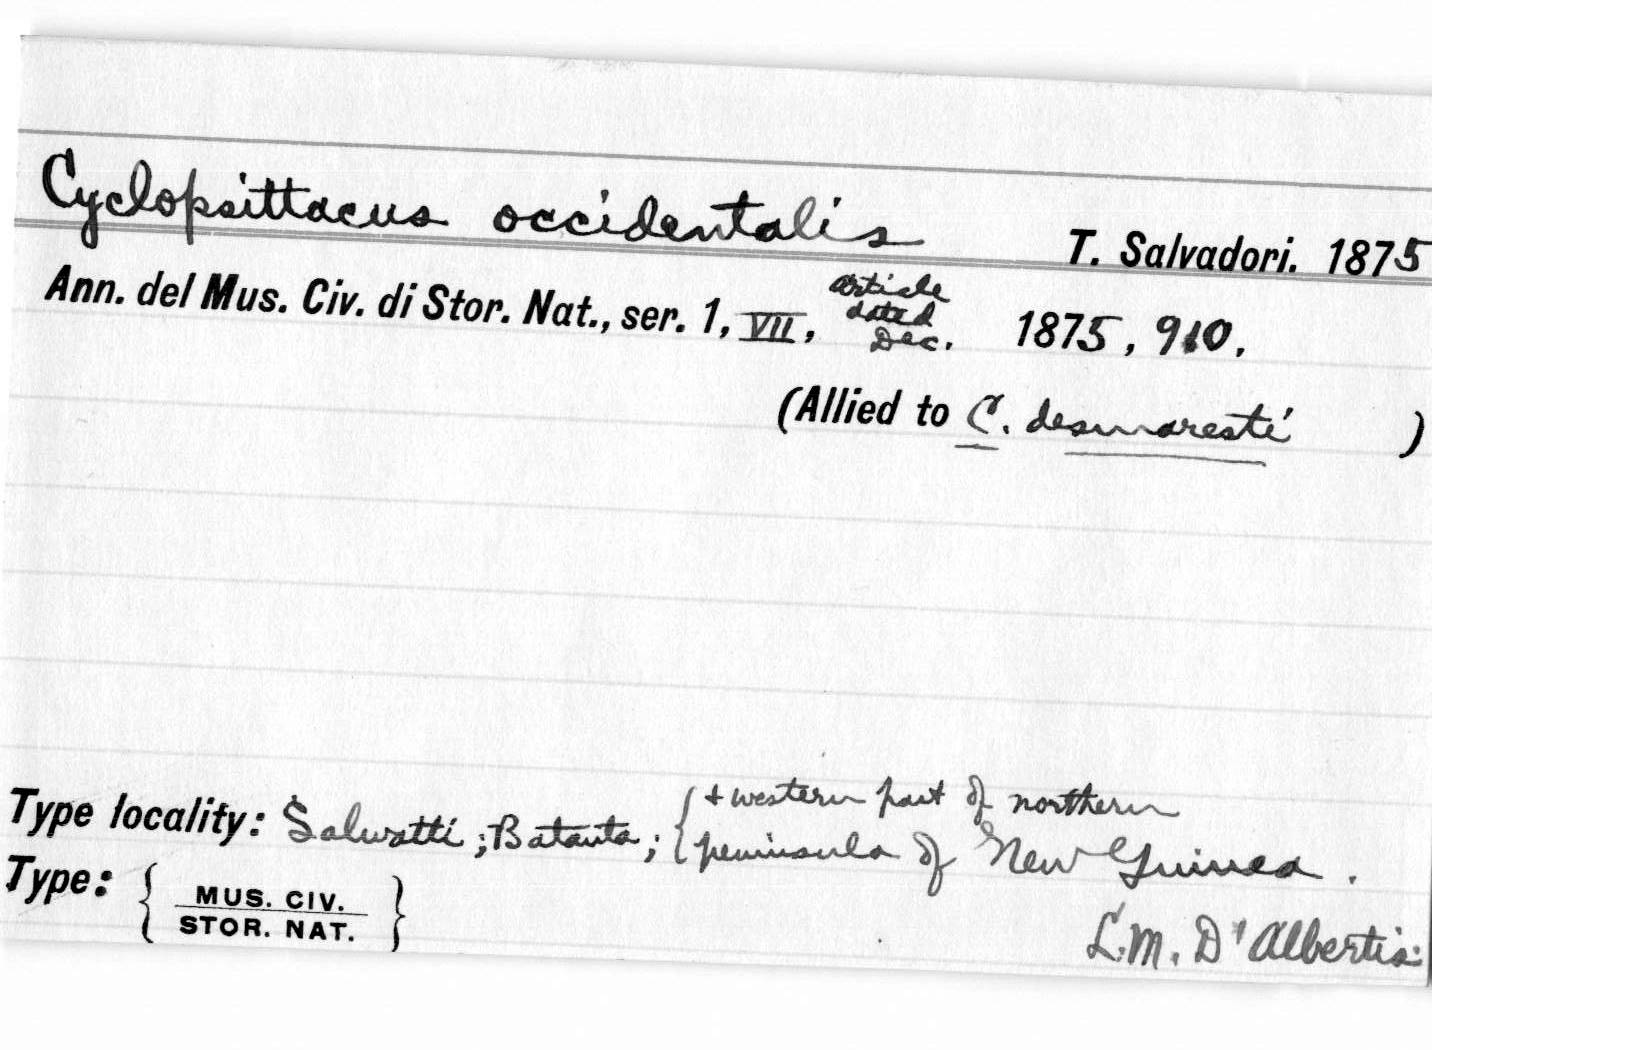 Cyclopsittacus occidentalis T. Salvadori. 1875
Ann. del Mus. Civ. di Stor. Nat., ser. 1, VII, article dated Dec. 1875, 910.
(Allied to C. desmaresti )
Type locality: Salwatti; Batanta; { + western part of northern
peninsula of New Guinea.
Type: { MUS. CIV.
STOR. NAT. }
L.M. D'Albertis.